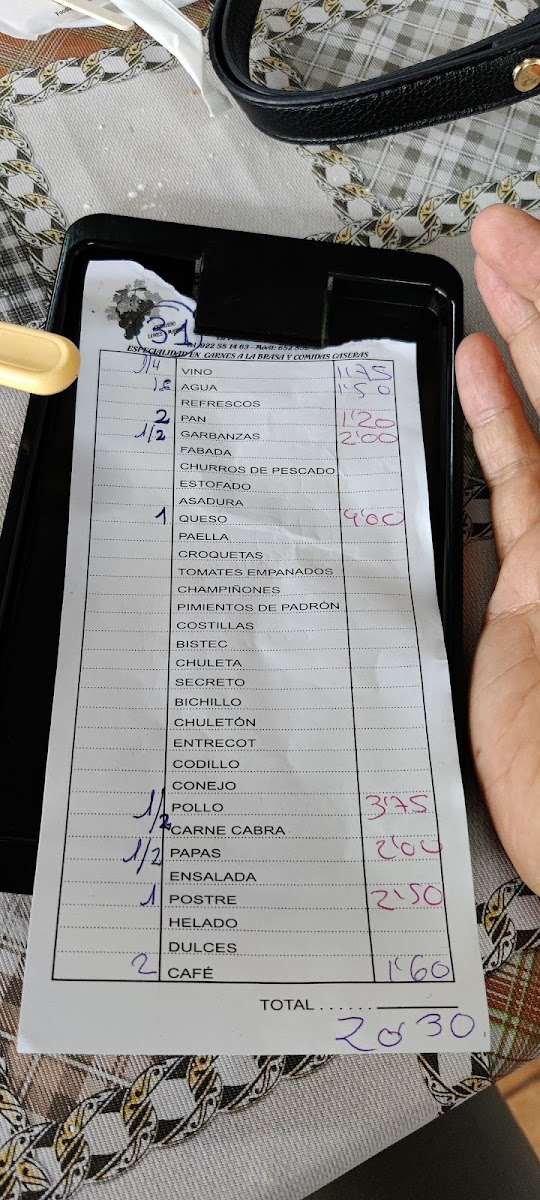 31
922 55 14 63 - Móvil: 652
ESPECIALIDAD EN CARNES A LA BRASA Y COMIDAS CASERAS
1/4 VINO 1'75
AGUA 1'50
REFRESCOS
2 PAN 1'20
1/2 GARBANZAS 2'00
FABADA
CHURROS DE PESCADO
ESTOFADO
ASADURA
1 QUESO 4'00
PAELLA
CROQUETAS
TOMATES EMPANADOS
CHAMPIÑONES
PIMIENTOS DE PADRÓN
COSTILLAS
BISTEC
CHULETA
SECRETO
BICHILLO
CHULETÓN
ENTRECOT
CODILLO
CONEJO
1/2 POLLO 3'75
CARNE CABRA
1/2 PAPAS 2'00
ENSALADA
1 POSTRE 2'50
HELADO
DULCES
2 CAFÉ 1'60
TOTAL . . . . . .
20'30